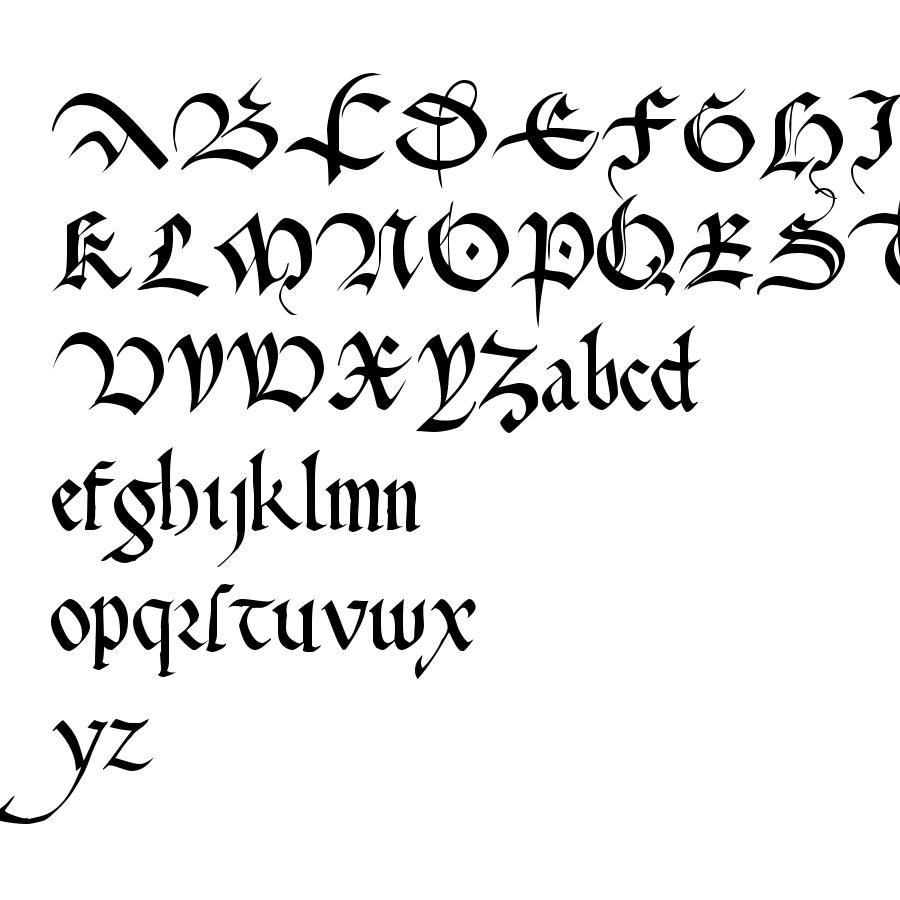 ABCDEFGHI
KLMNOPQRST
UVWXYZabcd
efghijklmn
opqrstuvwx
yz